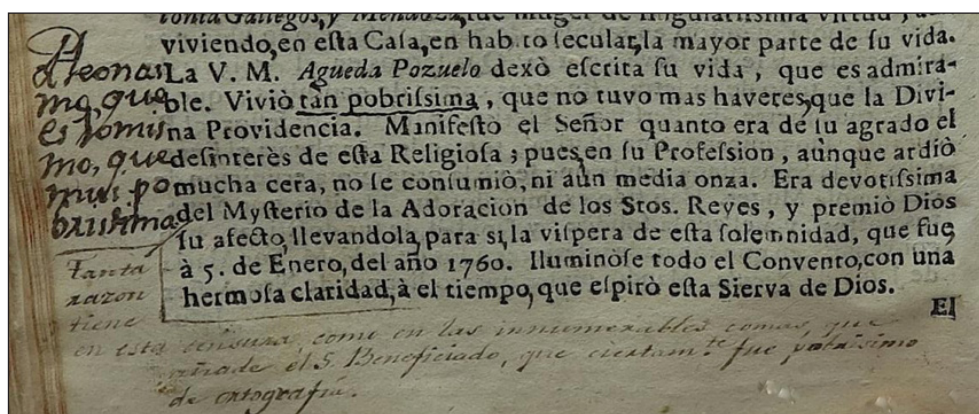 Gallegos, y Mendoza, fue muger de ſingulariſsima virtud,
viviendo, en eſta Caſa, en habito ſecular, la mayor parte de ſu vida.
La V. M. Agueda Pozuelo dexò eſcrita ſu vida, que es admira-
ble. Viviò tan pobriſsima, que no tuvo mas haveres, que la Divi-
na Providencia. Manifeſtò el Señor quanto era de ſu agrado el
deſinterès de eſta Religioſa; pues, en ſu Profeſsion, aunque ardiò
mucha cera, no ſe conſumiò, ni aun media onza. Era devotiſsima
del Myſterio de la Adoracion de los Stos. Reyes, y premiò Dios
ſu afecto, llevandola, para si, la viſpera de eſta ſolemnidad, que fue,
à 5. de Enero, del año 1760. Iluminòſe todo el Convento, con una
hermoſa claridad, à el tiempo, que eſpirò eſta Sierva de Dios.
El
Pleonas
mo, que
es lo mis
mo, que
mui po
brissima
Tanta
razon
tiene
en esta censura, como en las innumerables comas, que
añade el S. Beneficiado, que ciertam.te fue pobrisimo
de ortografia.